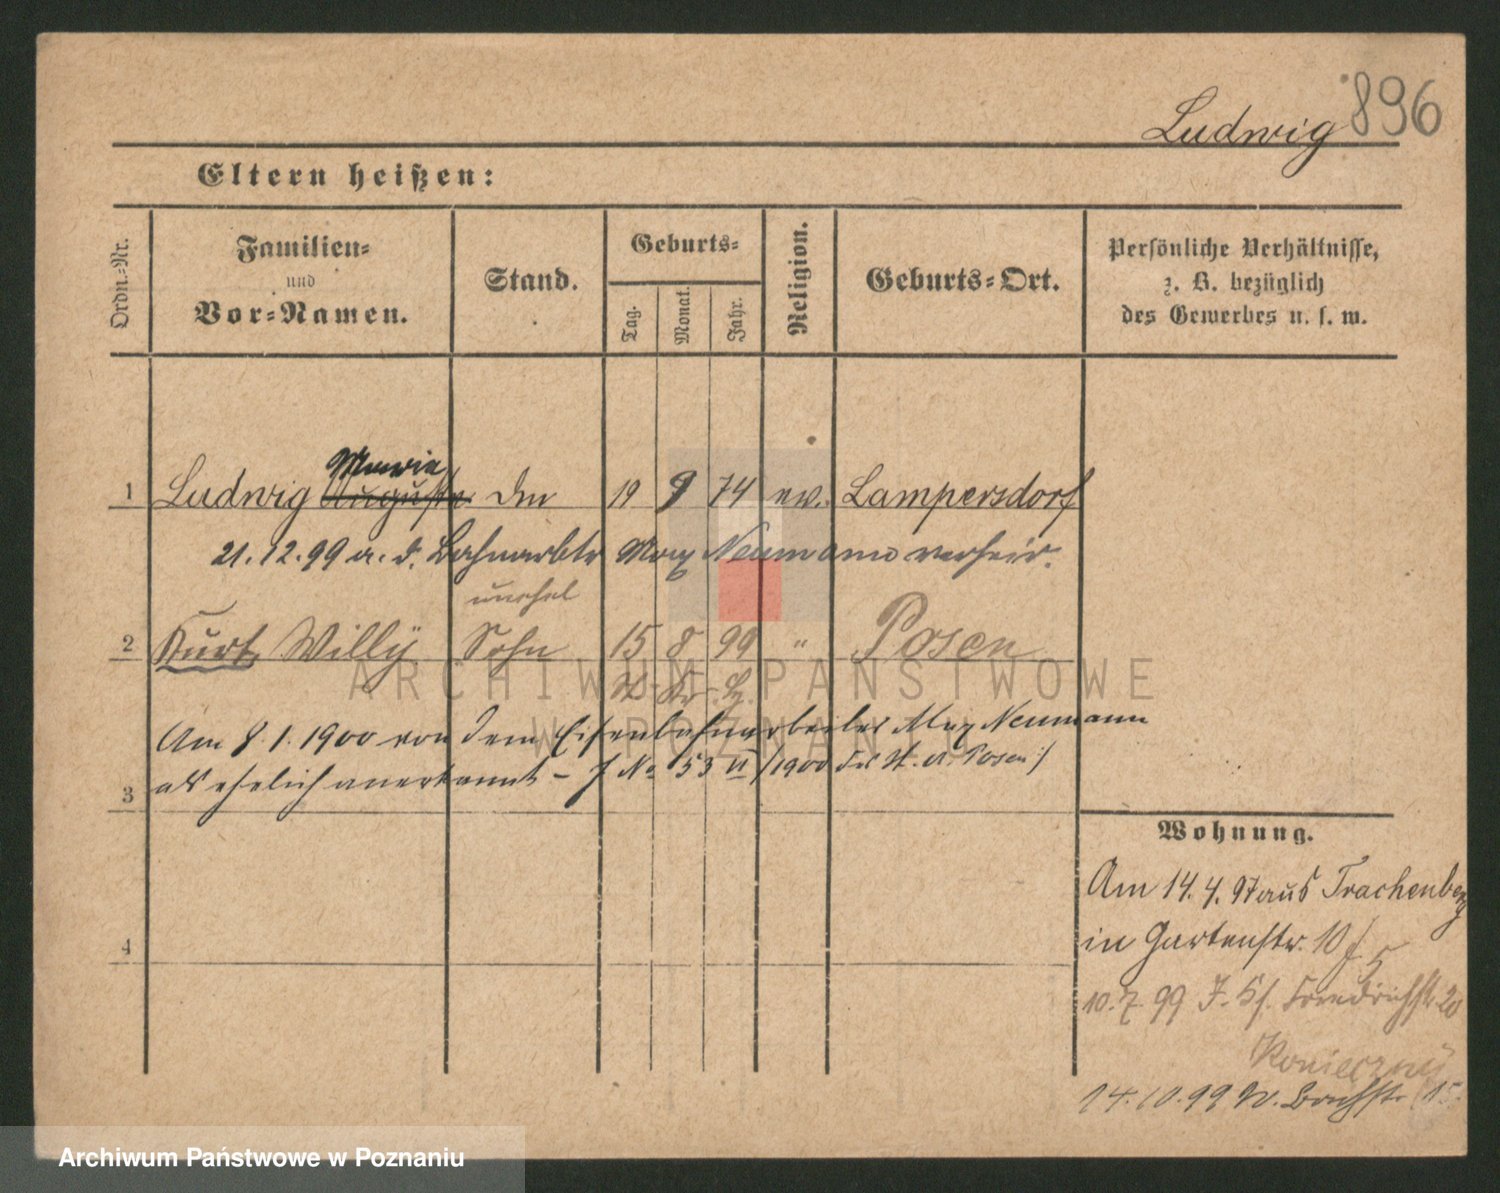 Ludwig 896
Eltern heißen:
Ordn.-Nr.
Familien-
und
Vor-Namen.
Stand.
Geburts-
Tag.
Monat.
Jahr.
Religion.
Geburts-Ort.
Persönliche Verhältnisse,
z. B. bezüglich
des Gewerbes u. s. w.
Maria
1 Ludwig Auguste 19 9 74 ev. Lampersdorf
21.12.99 a. d. Bahnarbtr Max Neumann verheir.
unehel
2 Kurt Willÿ Sohn 15 8 99 " Posen
Am 8.1.1900 von dem Eisenbahnarbeiter Max Neumann
als ehelich anerkannt - J No 53 VI/1900 des St. A. Posen
3
4
Wohnung.
Am 14.4.97 aus Trachenberg
in Gartenstr. 10
10.7.99 Friedrichstr 20
Konieczny
14.10.99 W. Bachstr 15.
ARCHIWUM PAŃSTWOWE
W POZNANIU
Archiwum Państwowe w Poznaniu